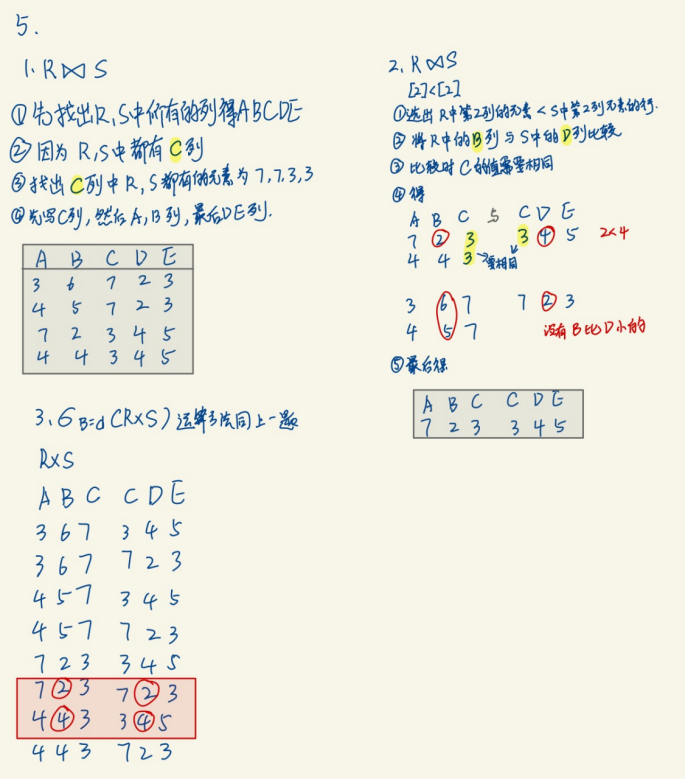 5.
1. R⋈S
① 先找出R,S中所有的列得ABCDE
② 因为R,S中都有C列
③ 找出C列中R,S都有的元素为7,7,3,3
④ 先写C列,然后A,B列,最后DE列.
A B C D E
3 6 7 2 3
4 5 7 2 3
7 2 3 4 5
4 4 3 4 5
2. R⋈S
[2]<[2]
① 选出R中第2列的元素<S中第2列元素的行.
② 将R中的B列与S中的D列比较
③ 比较时C的值需要相同
④ 得
A B C 与 C D E
7 2 3 3 4 5 2<4
4 4 3 →要相同
3 6 7 7 2 3
4 5 7 没有B比D小的
⑤ 最后得
A B C C D E
7 2 3 3 4 5
3. σB=d(R×S) 运算方法同上一题
R×S
A B C C D E
3 6 7 3 4 5
3 6 7 7 2 3
4 5 7 3 4 5
4 5 7 7 2 3
7 2 3 3 4 5
7 2 3 7 2 3
4 4 3 3 4 5
4 4 3 7 2 3